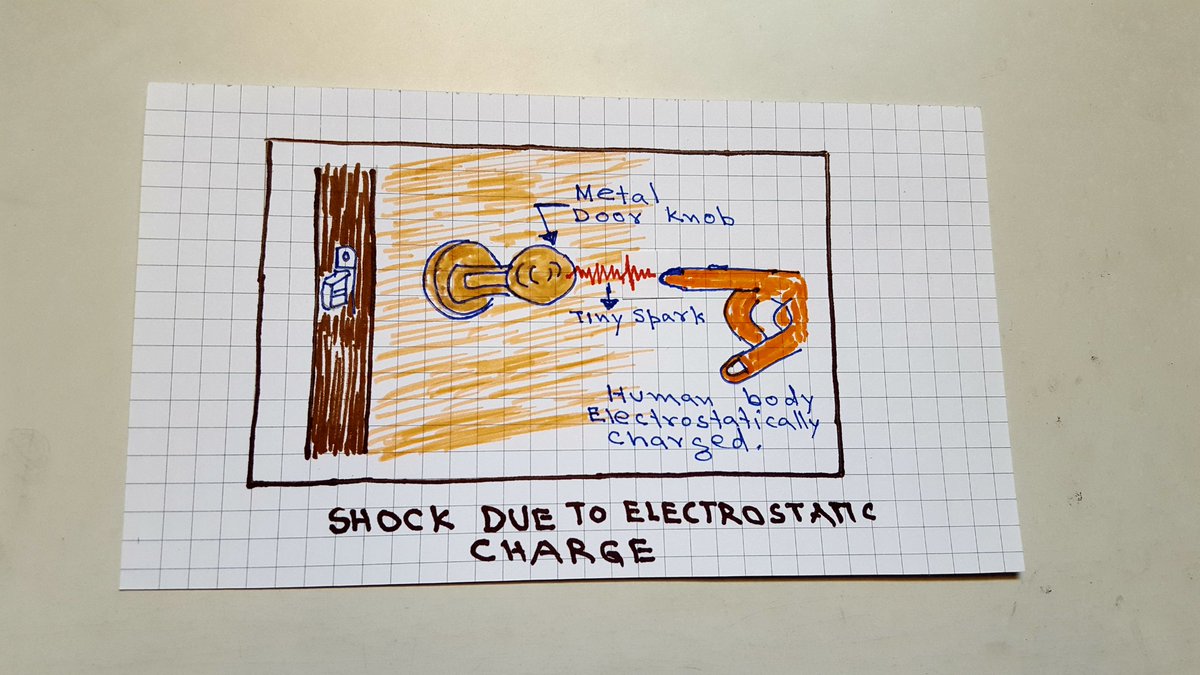 Metal
Door Knob
Tiny Spark
Human body
Electrostatically
charged.
SHOCK DUE TO ELECTROSTATIC
CHARGE